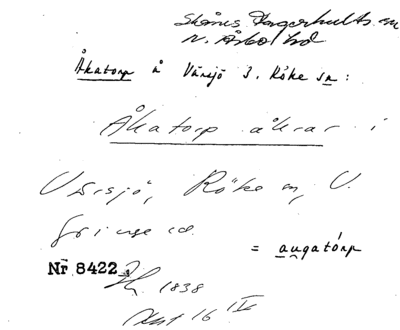 Skånes Fagerhults sn
N. Åsbo hd
Åkatorp å Värsjö 3. Röke sn:
Åkatorp åkrar i
Värsjö, Röke sn, V.
Göinge hd.
= augatårp
Nr 8422
1838
Akt 16 IV